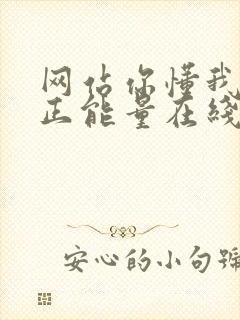 网站你懂我
正能量在线
安心的小句號